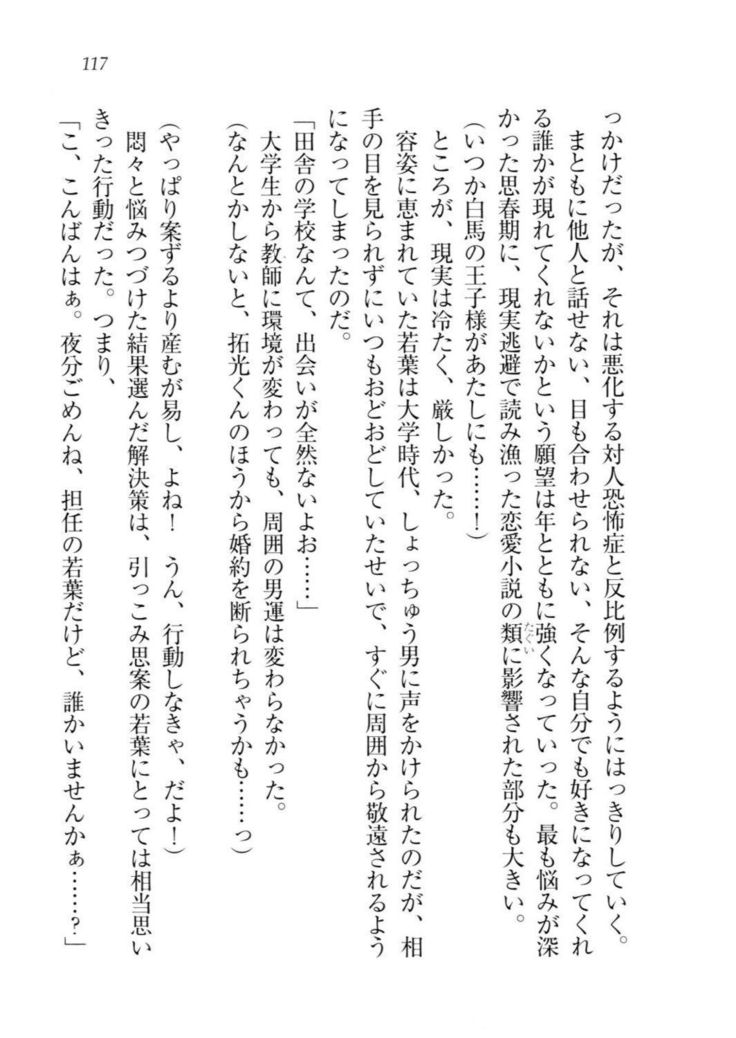 117
っかけだったが、それは悪化する対人恐怖症と反比例するようにはっきりしていく。
まともに他人と話せない、目も合わせられない、そんな自分でも好きになってくれ
る誰かが現れてくれないかという願望は年とともに強くなっていった。最も悩みが深
かった思春期に、現実逃避で読み漁った恋愛小説の類に影響された部分も大きい。
たぐい
(いつか白馬の王子様があたしにも……!)
ところが、現実は冷たく、厳しかった。
容姿に恵まれていた若葉は大学時代、しょっちゅう男に声をかけられたのだが、相
手の目を見られずにいつもおどおどしていたせいで、すぐに周囲から敬遠されるよう
になってしまったのだ。
「田舎の学校なんて、出会いが全然ないよお……」
大学生から教師に環境が変わっても、周囲の男運は変わらなかった。
(なんとかしないと、拓光くんのほうから婚約を断られちゃうかも……っ)
(やっぱり案ずるより産むが易し、よね! うん、行動しなきゃ、だよ!)
悶々と悩みつづけた結果選んだ解決策は、引っこみ思案の若葉にとっては相当思い
きった行動だった。つまり、
「こ、こんばんはぁ。夜分ごめんね、担任の若葉だけど、誰かいませんかぁ……?」